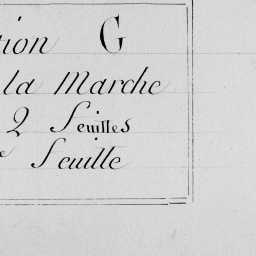 tion G
la Marche
2 Feuilles
e Feuille